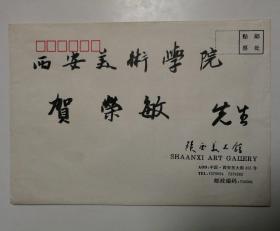 贴邮
票处
西安美術學院
賀榮敏 先生
陕西美术馆
SHAANXI ART GALLERY
邮政编码: